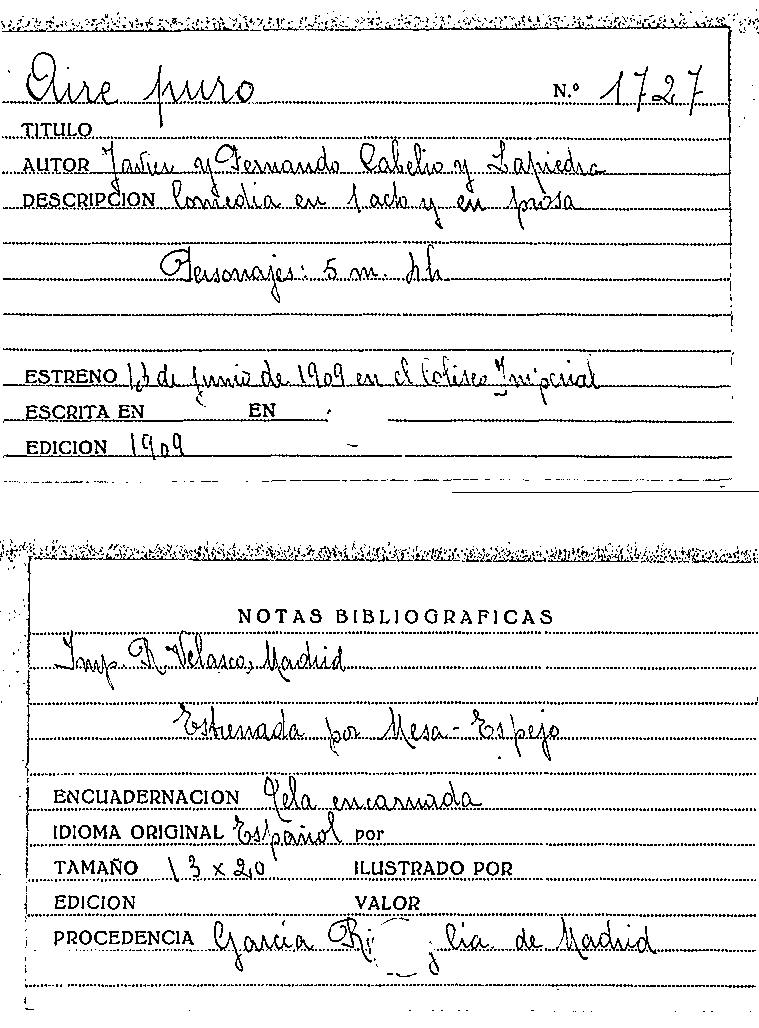 Aire puro N.º 1727
TITULO
AUTOR Javier y Fernando Cabello y Lapiedra
DESCRIPCION Comedia en 1 acto y en prosa
Personajes: 5 m. h.
ESTRENO de Junio de 1909 en el Coliseo Imperial
ESCRITA EN EN
EDICION 1909 -
NOTAS BIBLIOGRAFICAS
Imp. R. Velasco, Madrid
Estrenada por Mesa-Espejo
ENCUADERNACION Tela encarnada
IDIOMA ORIGINAL Español por
TAMAÑO 13 x 20 ILUSTRADO POR
EDICION VALOR
PROCEDENCIA García de Madrid